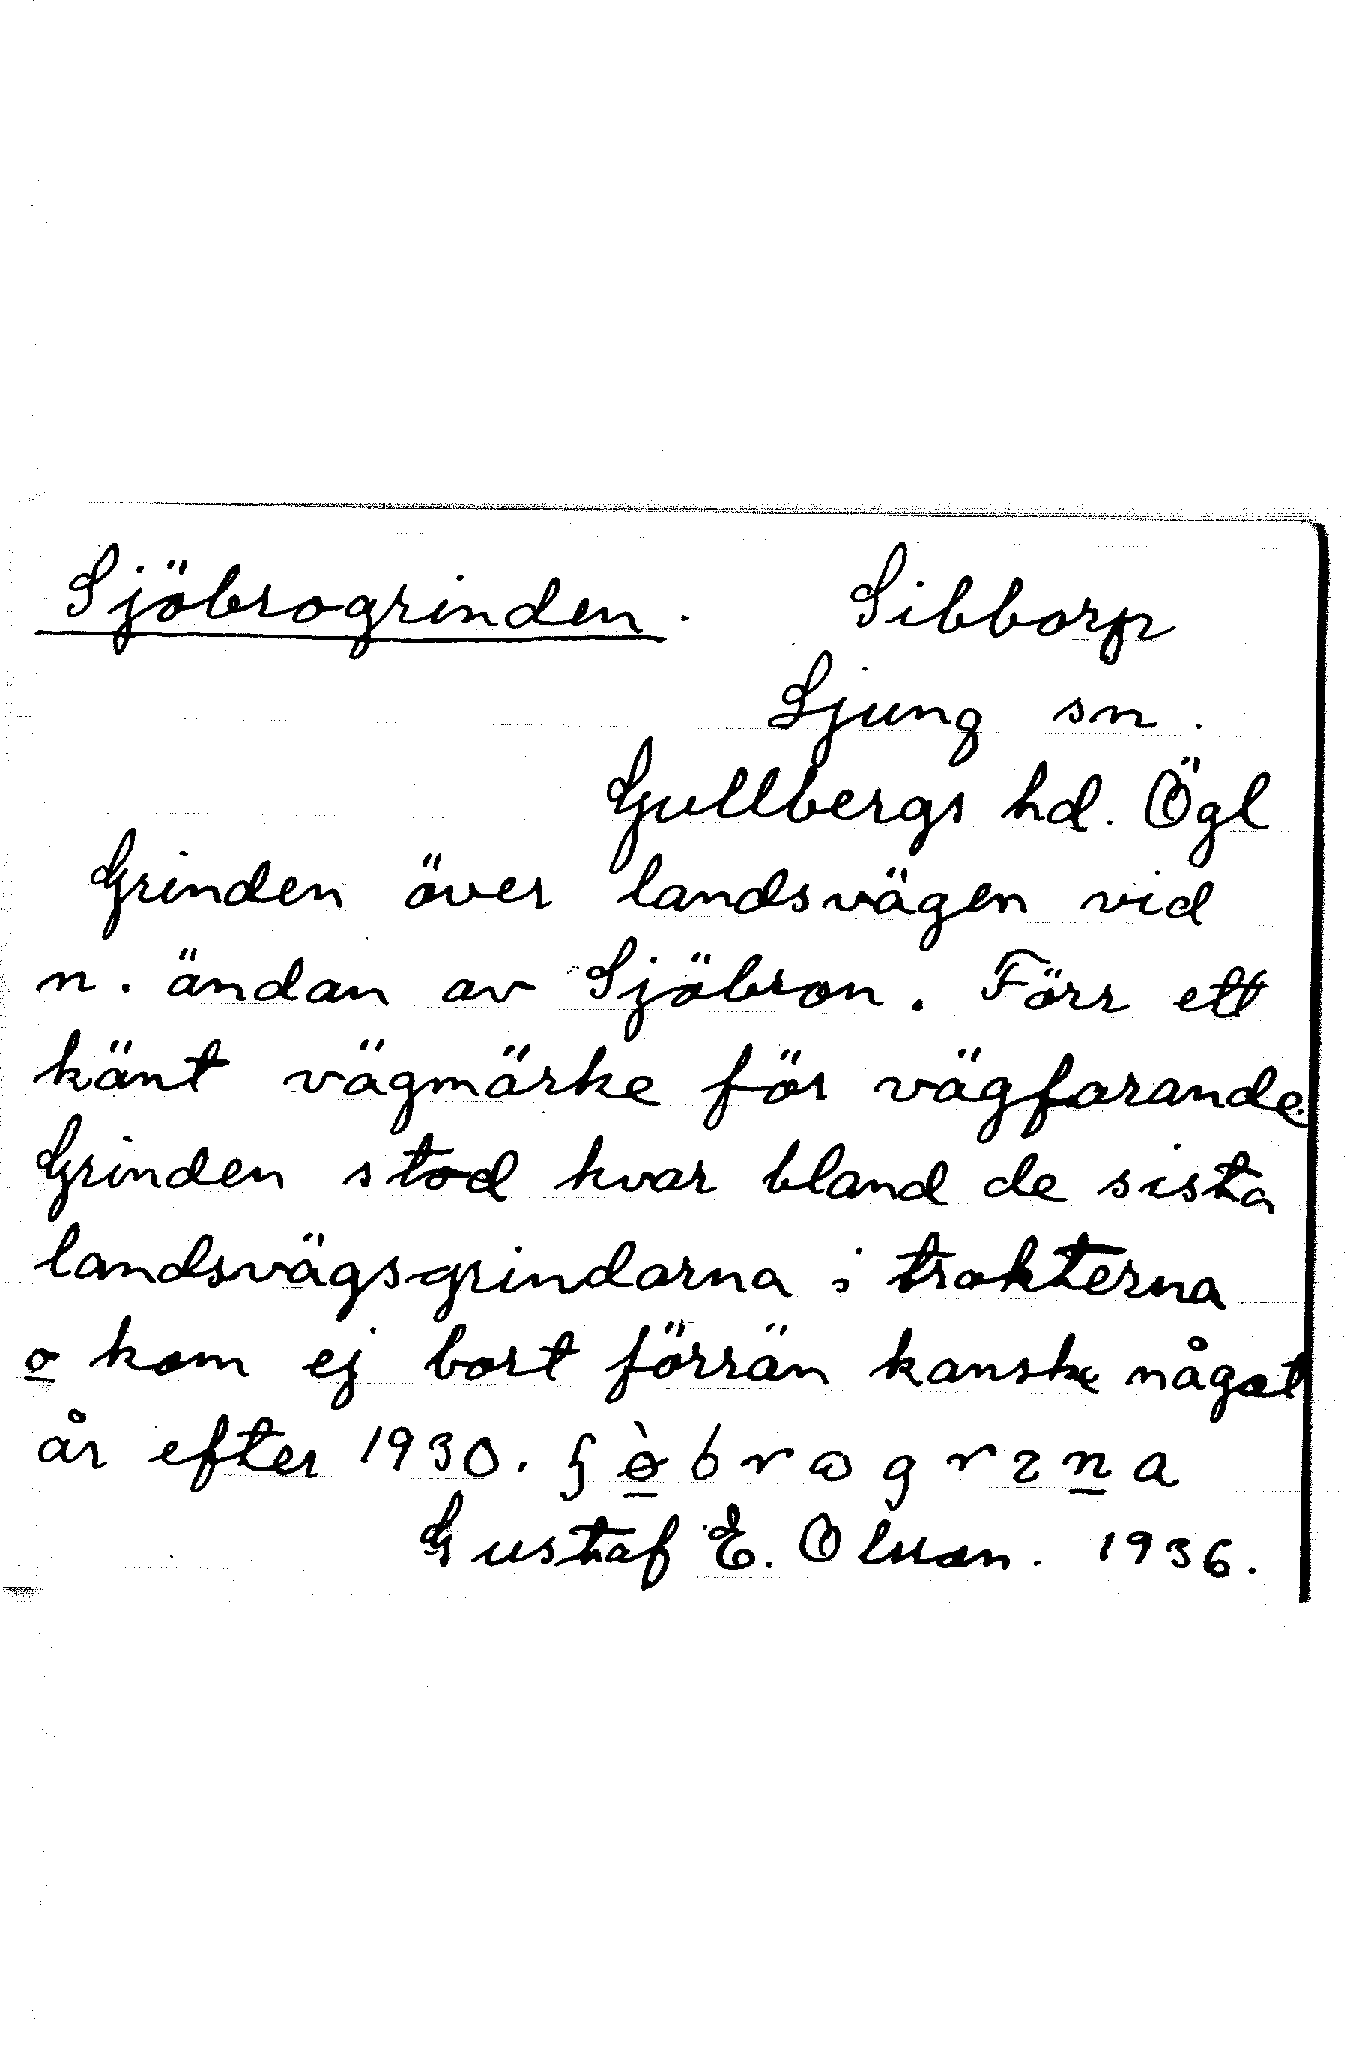 Sjöbrogrinden. Sibborp
Ljung sn.
Gullbergs hd. Ögl
Grinden över landsvägen vid
n. ändan av Sjöbron. Förr ett
känt vägmärke för vägfarande.
Grinden stod kvar bland de sista
landsvägsgrindarna i trakterna
o kom ej bort förrän kanske något
år efter 1930.
Gustaf E. Olsson. 1936.